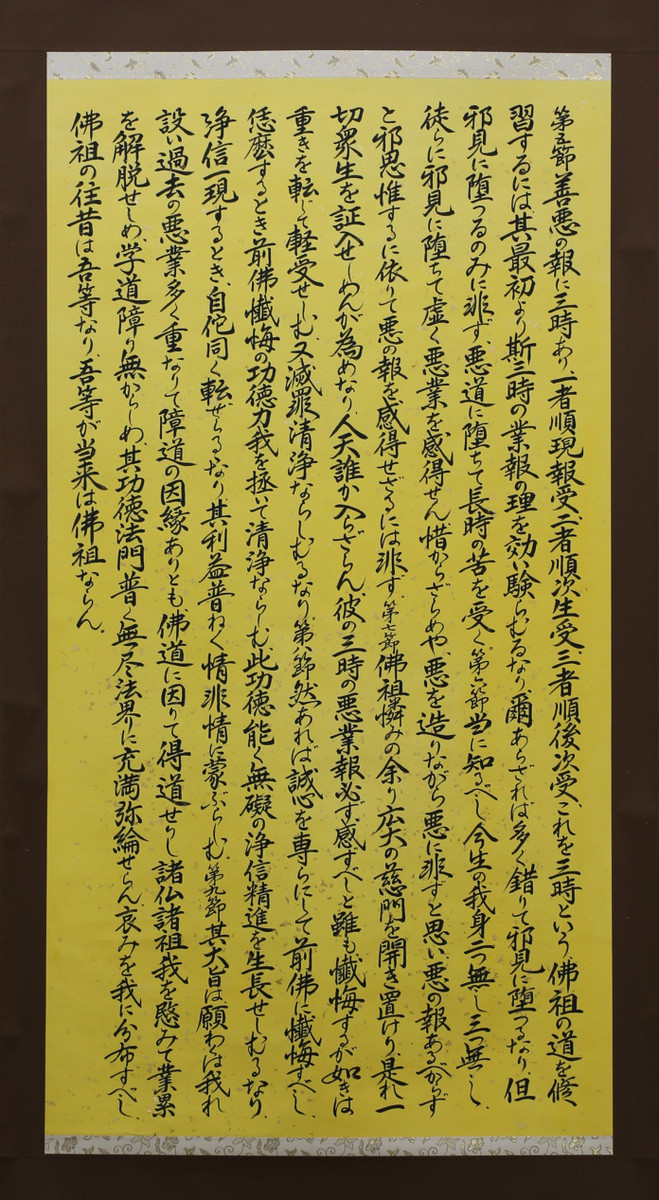 第五節善悪の報に三時あり、一者順現報受、二者順次生受、三者順後次受、これを三時という、佛祖の道を修
習するには、其最初より斯三時の業報の理を効い験らむるなり、爾あらざれば多く錯りて邪見に堕つるなり、但
邪見に堕つるのみに非ず、悪道に堕ちて長時の苦を受く、第六節当に知るべし今生の我身二つ無し三つ無し、
徒らに邪見に堕ちて虚く悪業を感得せん、惜からざらめや、悪を造りながら悪に非ずと思い、悪の報あるべからず
と邪思惟するに依りて悪の報を感得せざるには非ず、第七節佛祖憐みの余り広大の慈門を開き置けり、是れ一
切衆生を証入せしめんが為めなり、人天誰か入らざらん、彼の三時の悪業報必ず感ずべしと雖も、懺悔するが如きは
重きを転じて軽受せしむ、又滅罪清浄ならしむるなり、第八節然あれば誠心を専らにして前佛に懺悔すべし、
恁麼するとき前佛懺悔の功徳力我を拯いて清浄ならしむ、此功徳能く無礙の浄信精進を生長せしむるなり、
浄信一現するとき、自佗同く転ぜらるるなり、其利益普ねく情非情に蒙ぶらしむ、第九節其大旨は願わくは我れ
設い過去の悪業多く重なりて障道の因縁ありとも、佛道に因りて得道せりし諸仏諸祖我を愍みて業累
を解脱せしめ、学道障り無からしめ、其功徳法門普く無尽法界に充満弥綸せらん、哀みを我に分布すべし、
佛祖の往昔は吾等なり、吾等が当来は佛祖ならん、